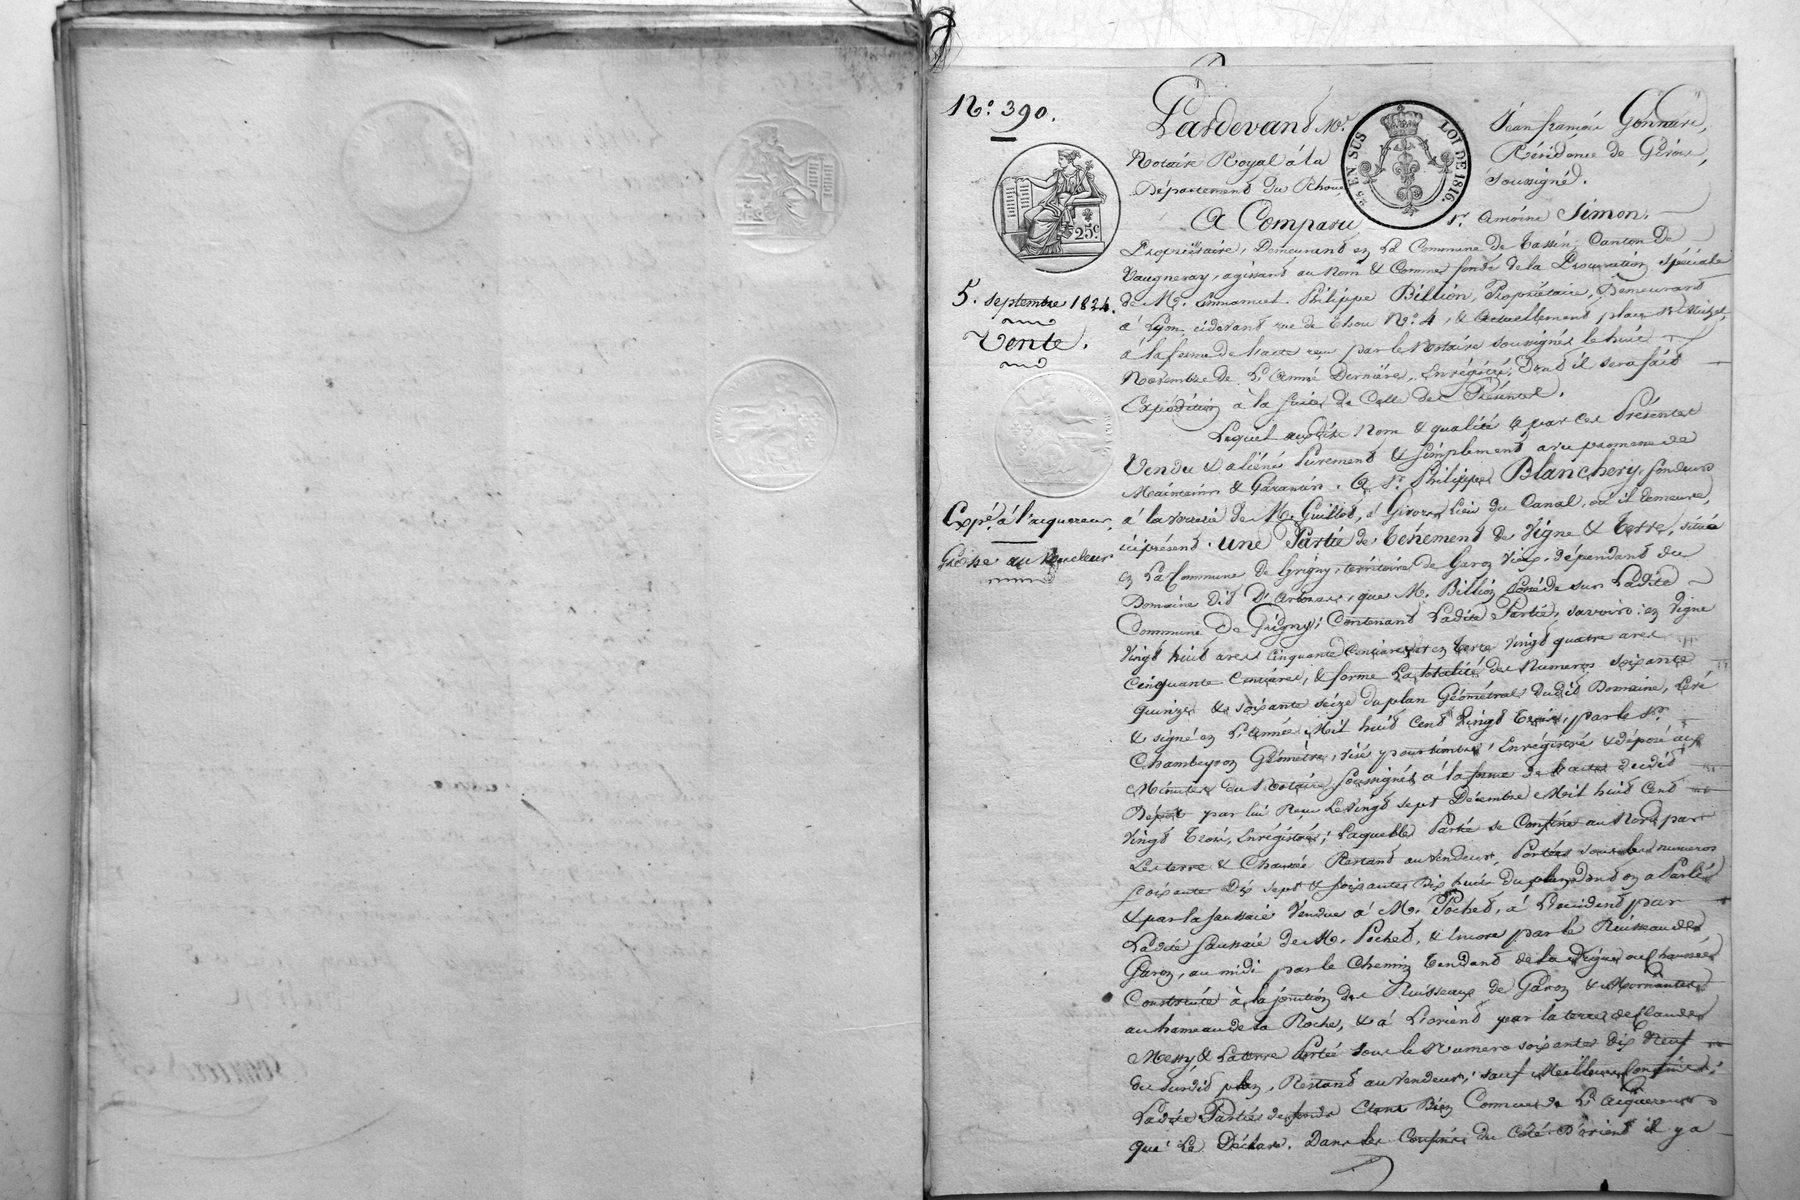 N.° 390.
25.c
5. septembre 1824.
Vente.
Expé. à l'acquereur.
Grosse au vendeur
Pardevant M.e Jean françois Gonnard,
Notaire Royal à la Résidence de Givors,
Département du Rhône soussigné.
2.s EN SUS LOI DE 1816.
A Comparu S.r Antoine Simon.
Propriétaire, Demeurant en La Commune de Tassin, Canton De
Vaugneray, agissant au Nom & Comme fondé de la Procuration Spéciale
de M. Emmanuel Philippe Billion, Propriétaire, Demeurant
à Lyon cidevant rue de Thou N.° 4, & actuellement place St Michel,
à la forme de l'acte reçu par le Notaire soussigné le huit
Novembre de L'Année Dernière, Enrégistré, Dont il sera fait
Expédition à la suite de Celle des Présentes.
Lequel audit Nom & qualité a par ces Présentes
Vendu & aliéné Purement & simplement avec promesse de
Maintenir & Garantir. A S.r Philippe Blanchery, fondeur
à la verrerie de M. Guillot, à Givors Lieu du Canal, où il demeure,
ici présent. une Partie de Ténement de Vigne & Terre, située
en La Commune de Grigny, térritoire de Garon Vieux, dépendant du
Domaine Dit D'Arboras, que M. Billion posséde sur Ladite
Commune De Grigny; Contenant Ladite Partie, savoir: en Vigne
Vingt huit ares cinquante Centiares & en terre Vingt quatre ares
Cinquante Centiares, & forme La totalité des Numeros soixante
quinze & soixante seize du plan Géométral dudit Domaine, Levé
& signé en L'Année Mil huit Cent Vingt Trois, par le S.r
Chambeyron Géomètre, visé pour timbre, Enrégistré & déposé aux
Minutes du Notaire soussigné, à la forme de l'acte dudit
Dépôt par lui Reçu Le Vingt sept Décembre Mil huit Cent
Vingt Trois, Enrégistré; Laquelle Partie se Confine au Nord par
Les terre & Chaussée Restant au vendeur, Portées sous les numeros
soixante Dix sept & soixante Dix huit du plan Dont on a Parlé
& par la saussaie Vendue à M. Pochet, à L'occident par
Ladite saussaie de M. Pochet, & Encore par le Ruisseau de
Garon, au midi par le Chemin Tendant de la Digue ou Chaussée
Construite à la jonction des Ruisseaux de Garon & Mornantet
au hameau de la Roche, & à L'orient par la terre de Claude
Messy & La terre Portée sous le Numero soixante dix Neuf
du susdit plan, Restant au vendeur, sauf Meilleurs Confins;
Ladite Partie de fonds Etant Bien Connue de L'Acquereur
que Le Déclare. Dans les Confins du Côté D'orient il y a